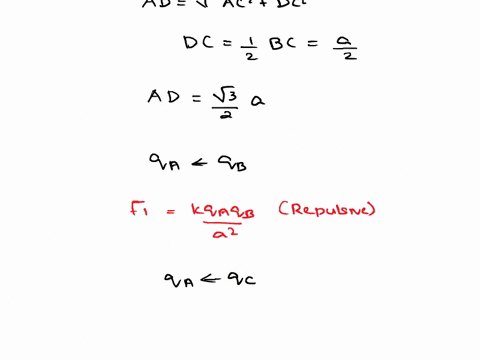 AD = √ AC² + DC²
DC = 1/2 BC = a/2
AD = √3/2 a
qA ← qB
F1 = kqAqB/a² (Repulsive)
qA ← qC